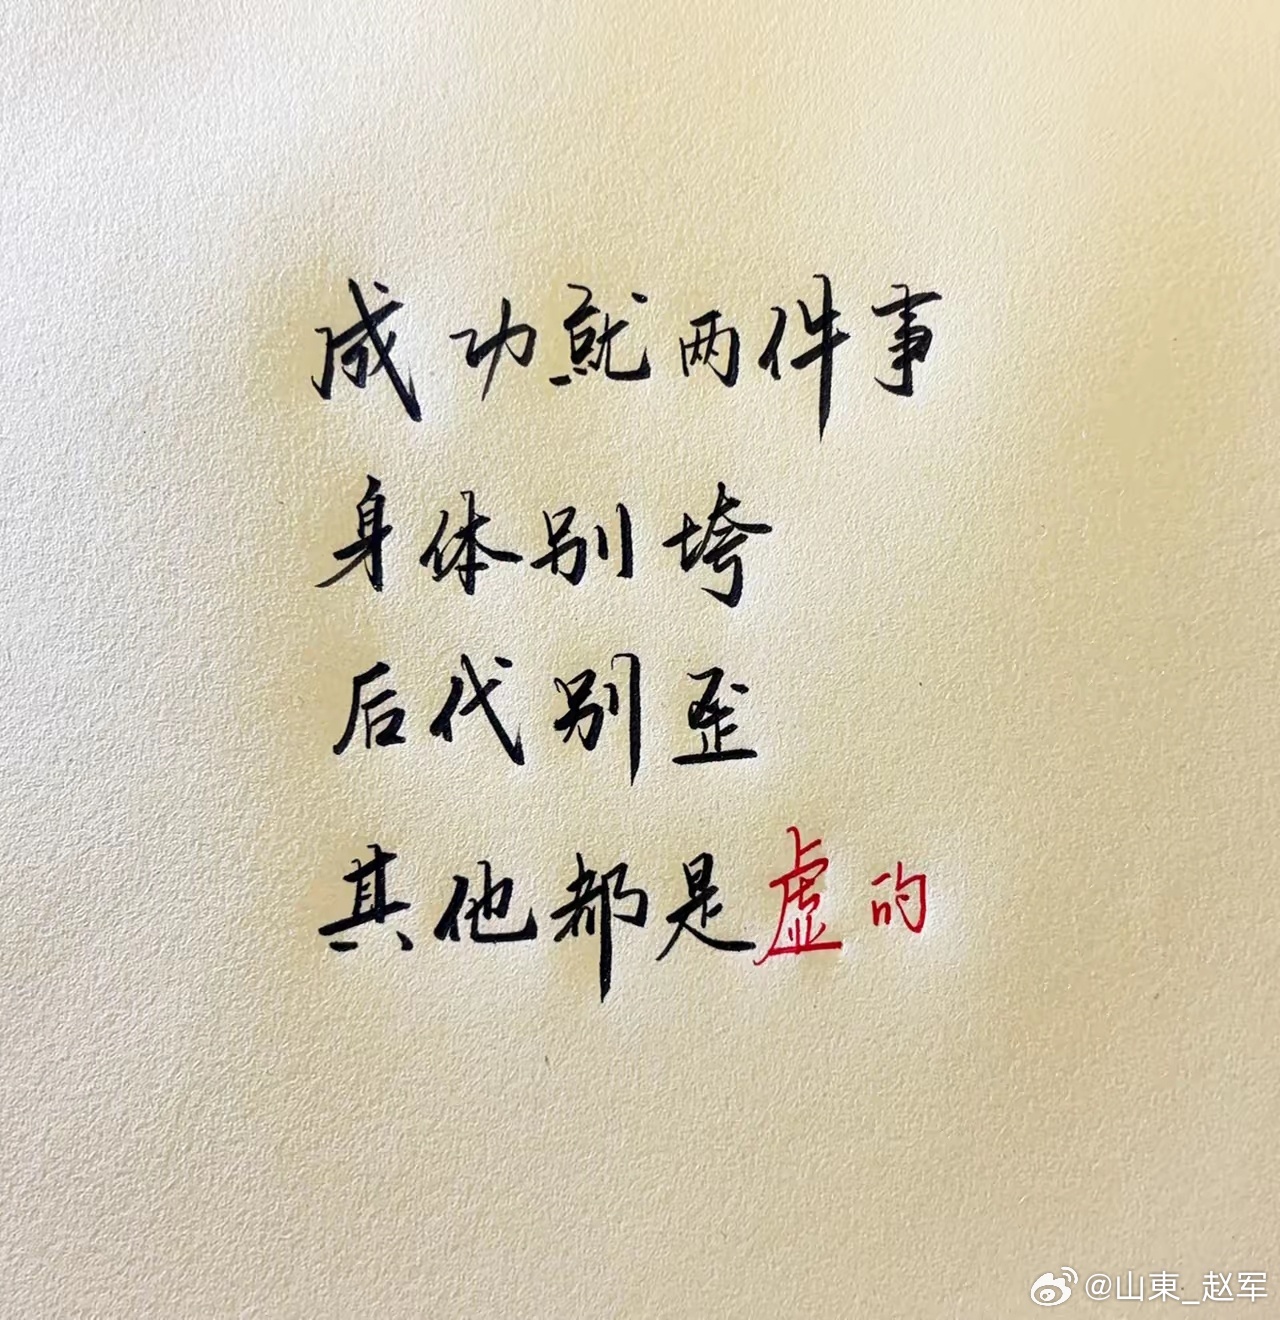 成功就两件事
身体别垮
后代别歪
其他都是虚的
@山東_赵军